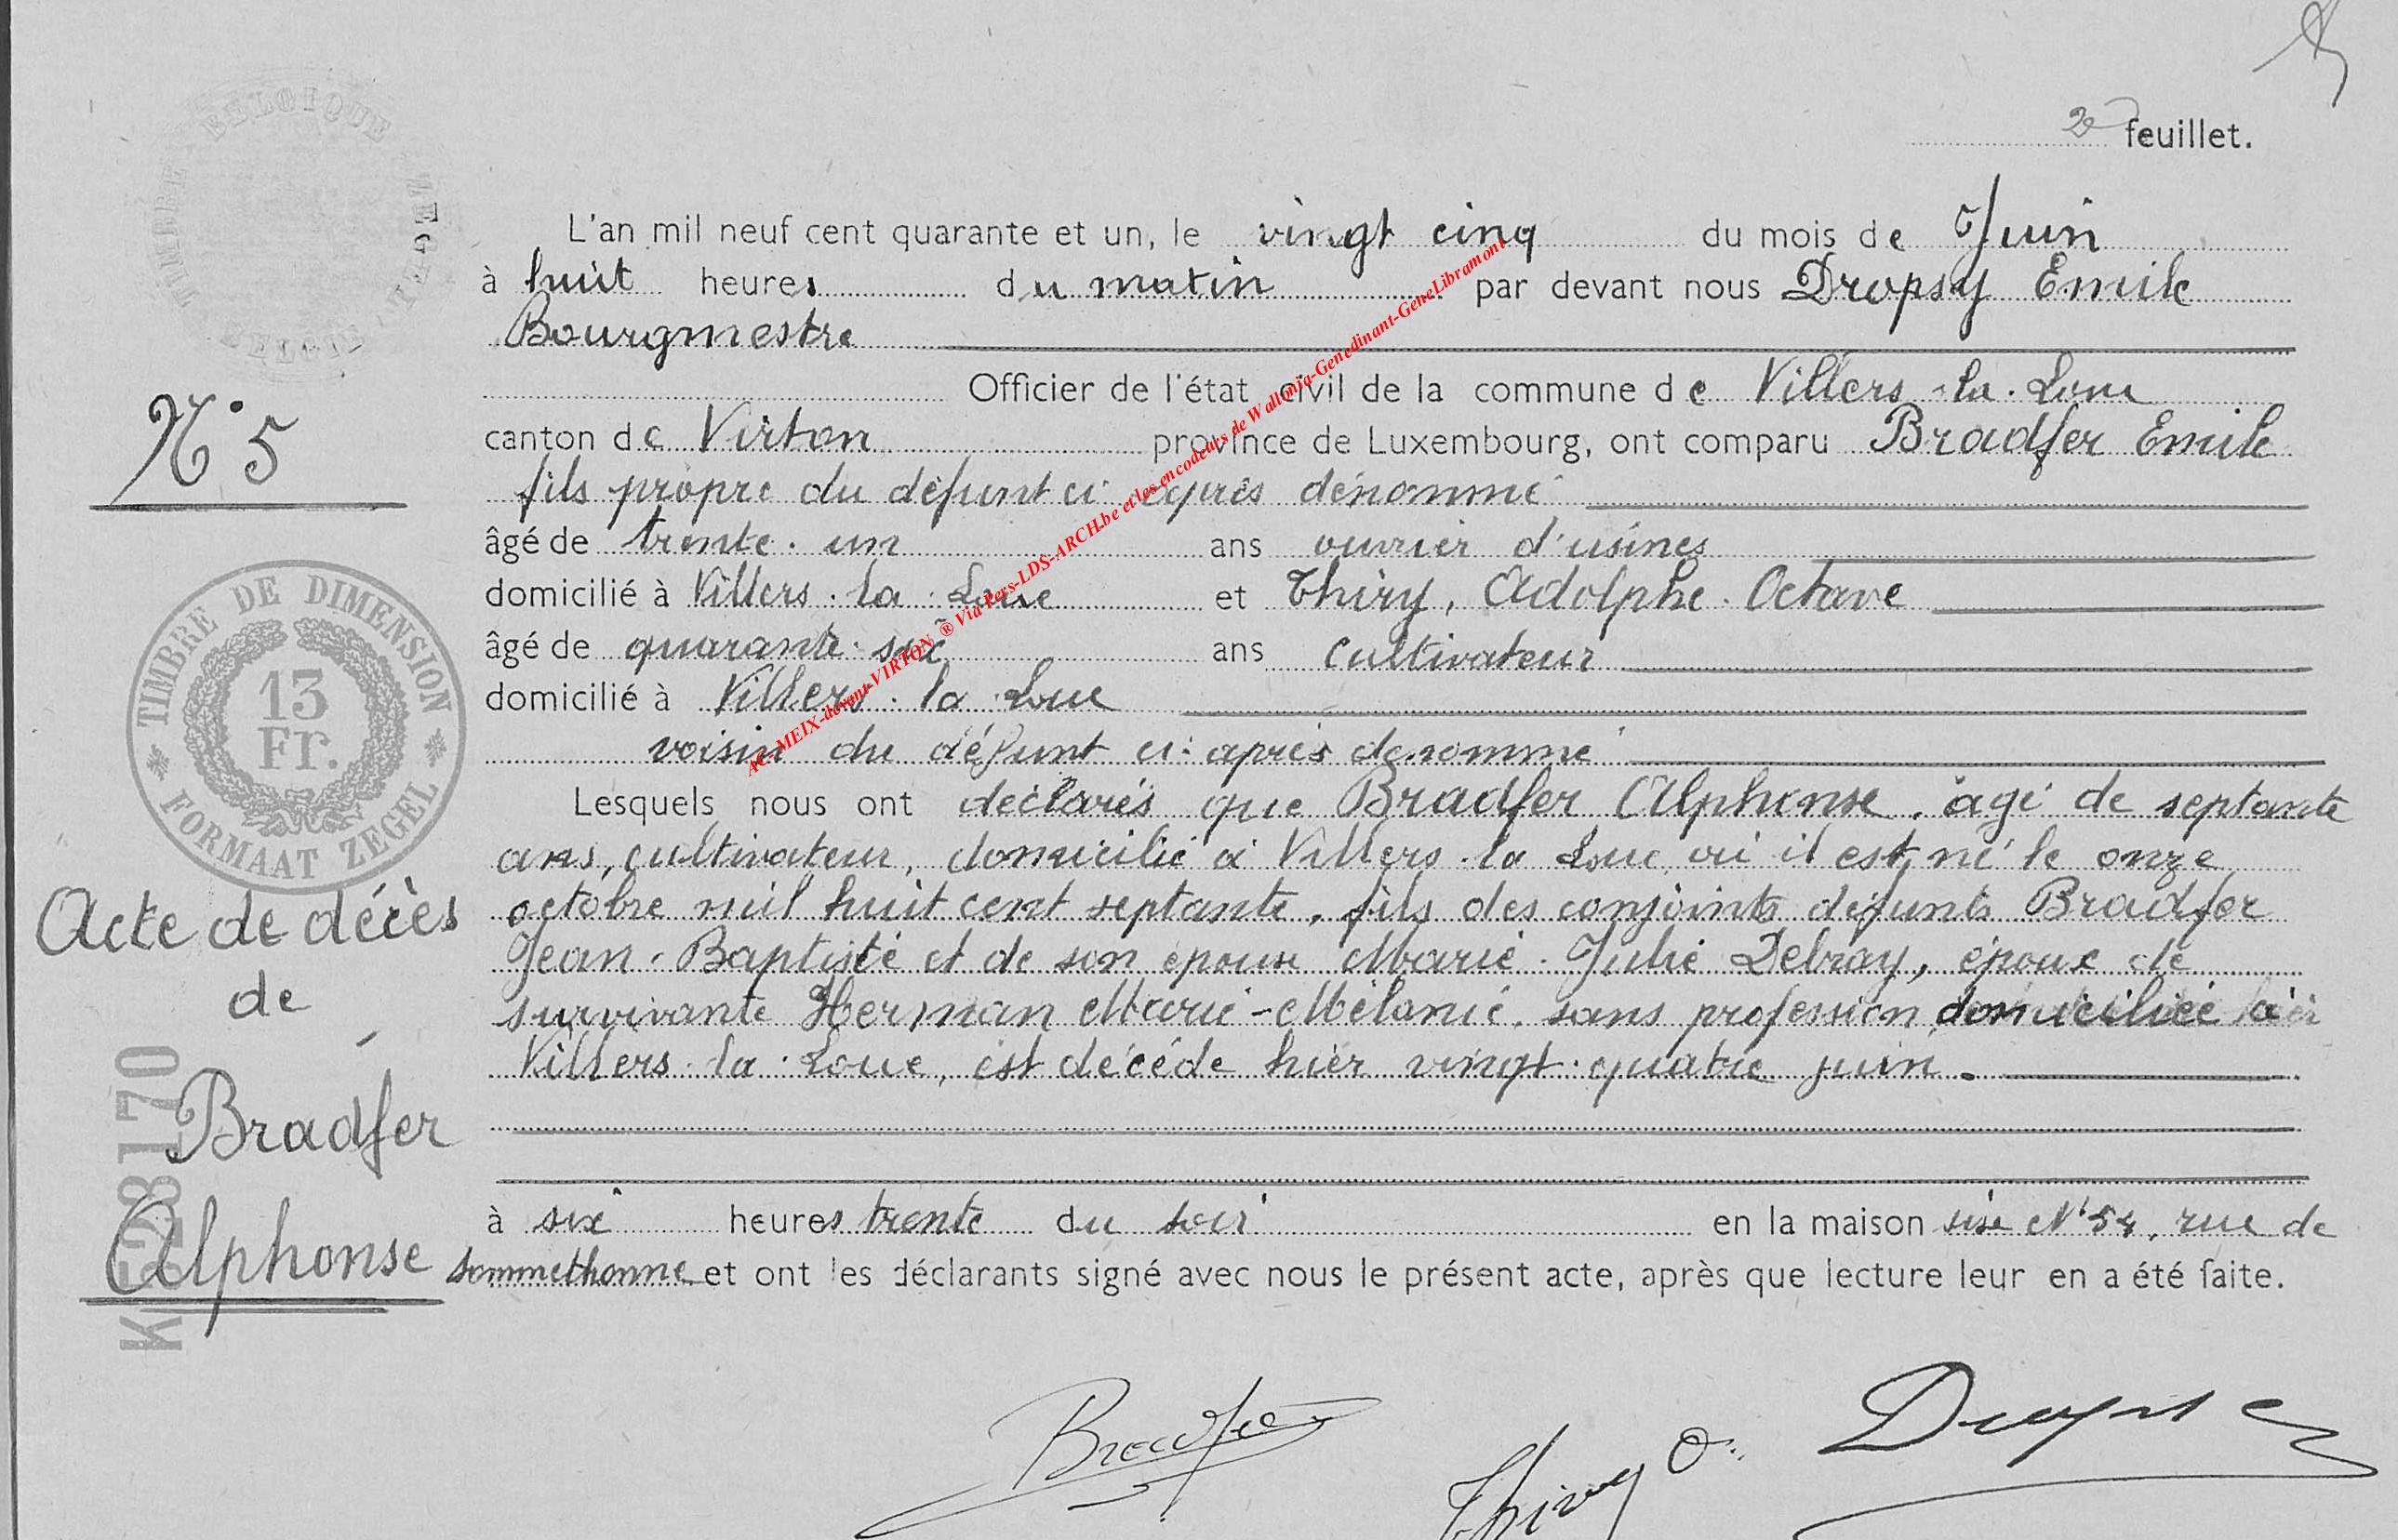 2e feuillet.
BELGIQUE ZEGEL BELGIË TIMBRE
L'an mil neuf cent quarante et un, le vingt cinq du mois de Juin
à huit heures du matin par devant nous Dropsy Emile
Bourgmestre
Officier de l'état civil de la commune de Villers-la-Loue
canton de Virton province de Luxembourg, ont comparu Bradfer Emile
fils propre du défunt ci-après dénommé
âgé de trente-un ans ouvrier d'usines
domicilié à Villers-la-Loue et Thiry, Adolphe-Octave
âgé de quarante-six ans cultivateur
domicilié à Villers-la-Loue
voisin du défunt ci-après dénommé
Lesquels nous ont déclarés que Bradfer Alphonse, âgé de septante
ans, cultivateur, domicilié à Villers-la-Loue, où il est né le onze
octobre mil huit cent septante, fils des conjoints défunts Bradfer
Jean-Baptiste et de son épouse Marie-Julie Debray, époux de
survivante Herman Marie-Mélanie, sans profession, domiciliée à
Villers-la-Loue, est décédé hier vingt-quatre juin.
à six heures trente du soir en la maison sise N°54, rue de
Sommethonne et ont les déclarants signé avec nous le présent acte, après que lecture leur en a été faite.
N° 5
TIMBRE DE DIMENSION
13
Fr.
FORMAAT ZEGEL
Acte de décès
de
Bradfer
Alphonse
Bradfer
Thiry O.
Dropsy
AC-MEIX-devant-VIRTON ® Via Pers-LDS-ARCH.be et les encodeurs de Wallonia-Genedinant-GeneLibramont